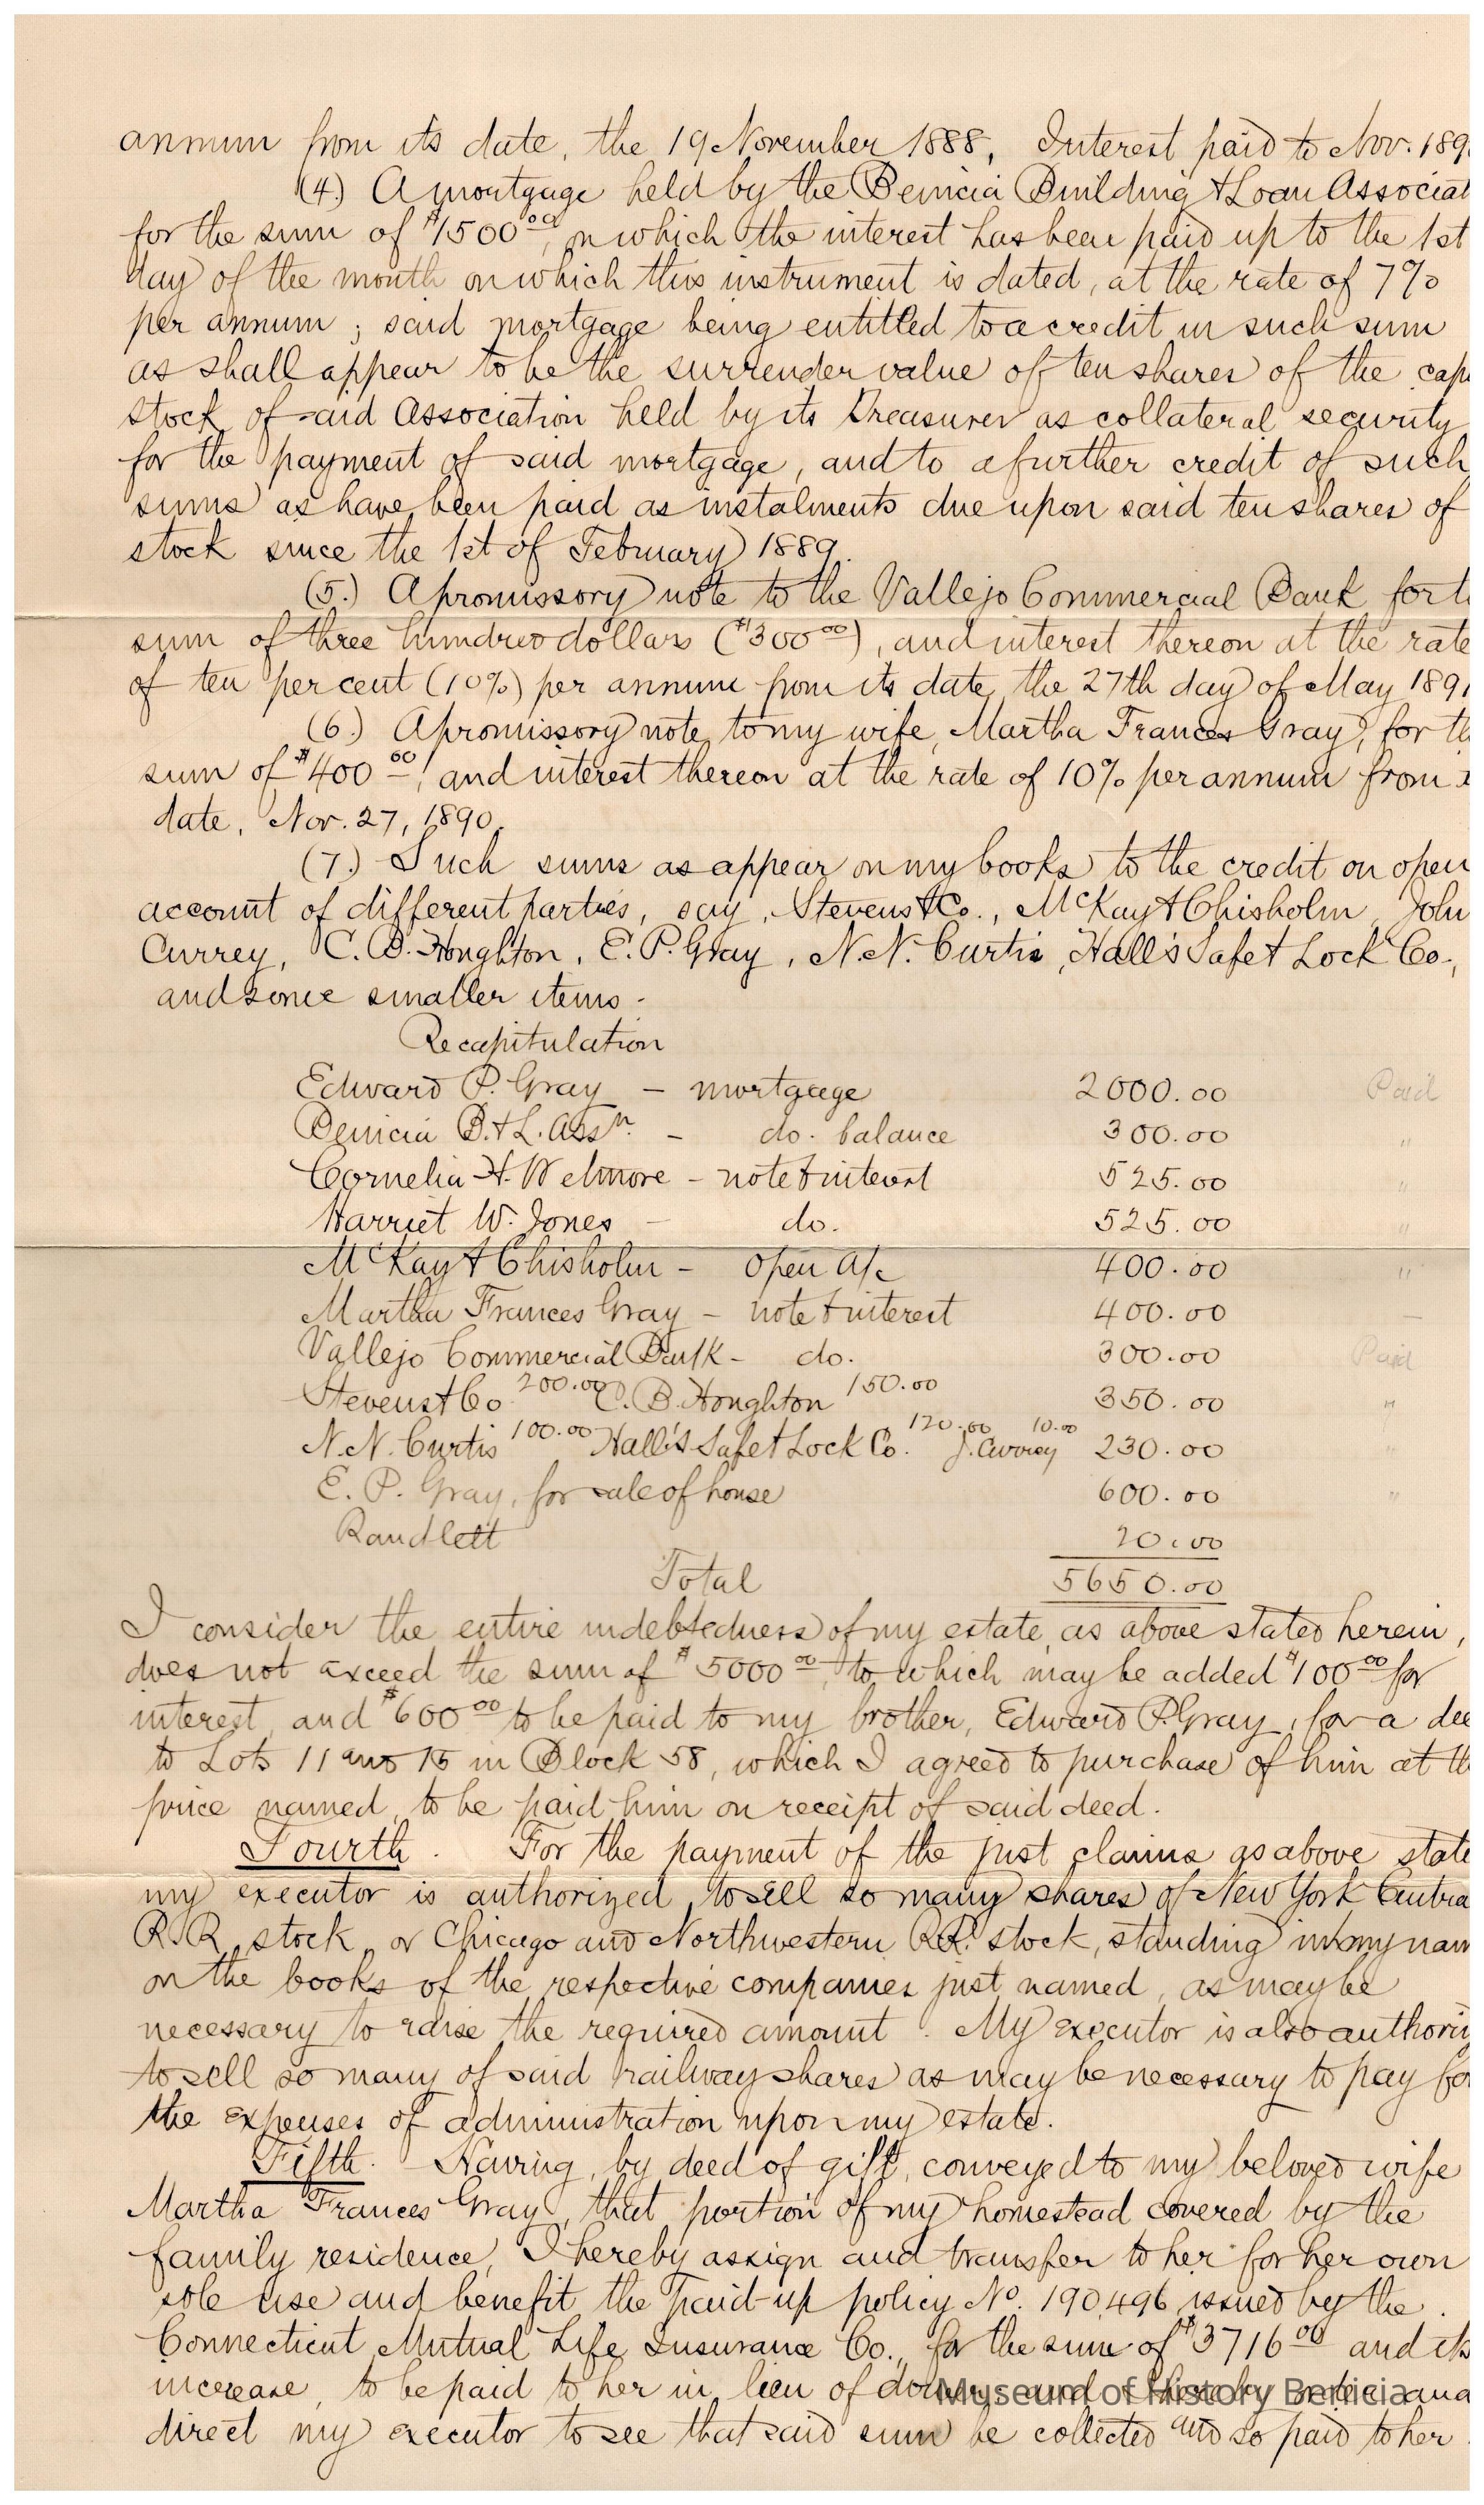 annum from its date, the 19 November 1888, Interest paid to Nov. 189
(4.) A mortgage held by the Benicia Building & Loan Associat
for the sum of $1500 00, on which the interest has been paid up to the 1st
day of the month on which this instrument is dated, at the rate of 7%
per annum ; said mortgage being entitled to a credit in such sum
as shall appear to be the surrender value of ten shares of the cap
stock of said Association held by its Treasurer as collateral security
for the payment of said mortgage, and to a further credit of such
sums as have been paid as instalments due upon said ten shares of
stock since the 1st of February 1889.
(5.) A promissory note to the Vallejo Commercial Bank for t
sum of three hundred dollars ($300 00), and interest thereon at the rate
of ten per cent (10%) per annum from its date, the 27th day of May 1891
(6.) A promissory note to my wife, Martha Frances Gray, for th
sum of $400 00, and interest thereon at the rate of 10% per annum from
date, Nov. 27, 1890.
(7.) Such sums as appear on my books to the credit on open
account of different parties, say, Stevens & Co., McKay & Chisholm, John
Currey, C. B. Houghton, E. P. Gray, N. N. Curtis, Hall's Safe & Lock Co.,
and some smaller items.
Recapitulation
Edward P. Gray – mortgage 2000.00 Paid
Benicia B. & L. Assn. – do. balance 300.00 "
Cornelia H. Wetmore – note & interest 525.00 "
Harriet W. Jones – do. 525.00 "
McKay & Chisholm – open a/c 400.00 "
Martha Frances Gray – note & interest 400.00 —
Vallejo Commercial Bank – do. 300.00 Paid
Stevens & Co 200.00 C. B. Houghton 150.00 350.00 "
N. N. Curtis 100.00 Hall's Safe & Lock Co. 120.00 J. Currey 10.00 230.00 "
E. P. Gray, for sale of house 600.00 "
Randlett 20.00
Total 5650.00
I consider the entire indebtedness of my estate, as above stated herein,
does not exceed the sum of $5000 00, to which may be added $100 00 for
interest, and $600 00 to be paid to my brother, Edward P. Gray, for a dee
to Lots 11 and 15 in Block 58, which I agreed to purchase of him at th
price named, to be paid him on receipt of said deed.
Fourth. For the payment of the just claims as above state
my executor is authorized to sell so many shares of New York Centra
R.R. stock, or Chicago and Northwestern R.R. stock, standing in my nam
on the books of the respective companies just named, as may be
necessary to raise the required amount. My executor is also authori
to sell so many of said railway shares as may be necessary to pay for
the expenses of administration upon my estate.
Fifth. Having, by deed of gift, conveyed to my beloved wife
Martha Frances Gray, that portion of my homestead covered by the
family residence, I hereby assign and transfer to her for her own
sole use and benefit the paid-up policy No. 190,496 issued by the
Connecticut Mutual Life Insurance Co., for the sum of $3716 00 and its
increase, to be paid to her in lieu of dower, and I hereby and
Museum of History Benicia
direct my executor to see that said sum be collected and so paid to her